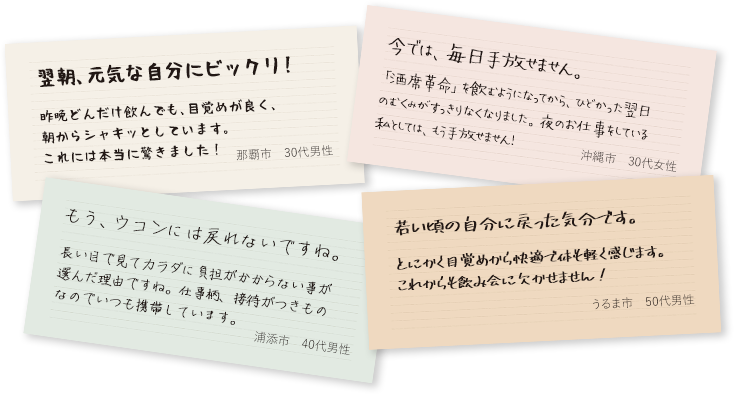 翌朝、元気な自分にビックリ！
昨晩どんだけ飲んでも、目覚めが良く、
朝からシャキッとしています。
これには本当に驚きました！
那覇市　30代男性
今では、毎日手放せません。
「酒席革命」を飲むようになってから、ひどかった翌日
のむくみがすっきりなくなりました。夜のお仕事をしている
私としては、もう手放せません！
沖縄市　30代女性
もう、ウコンには戻れないですね。
長い目で見てカラダに負担がかからない事が
選んだ理由ですね。仕事柄、接待がつきもの
なのでいつも携帯しています。
浦添市　40代男性
若い頃の自分に戻った気分です。
とにかく目覚めから快適で体も軽く感じます。
これからも飲み会に欠かせません！
うるま市　50代男性